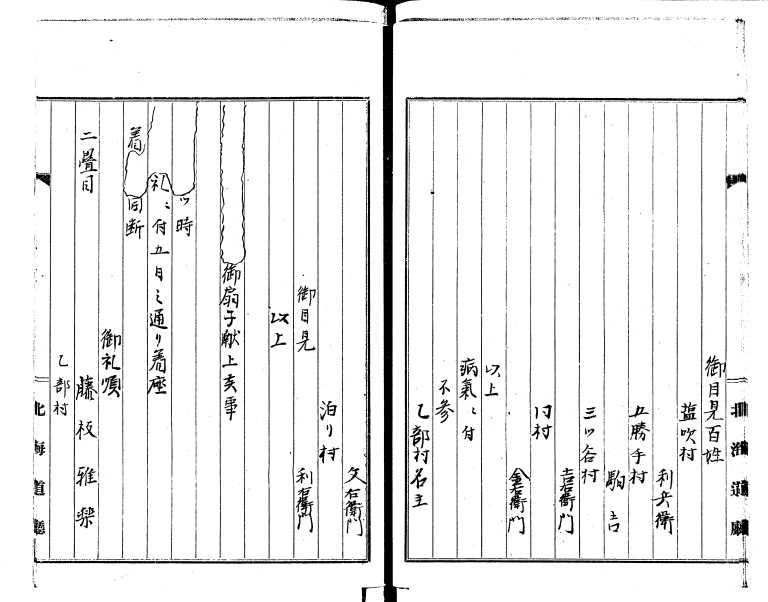 御目見百姓
塩吹村
利兵衛
五勝手村
駒吉
三ツ谷村
吉右衛門
同村
金右衛門
以上
病氣ニ付
不参
乙部村名主
文右衛門
泊り村
利右衛門
御目見
以上
御扇子献上亥事
ツ時
礼ニ付五日之通り着座
着
同断
二畳目
御礼順
藤枝雅楽
乙部村
北海道廳